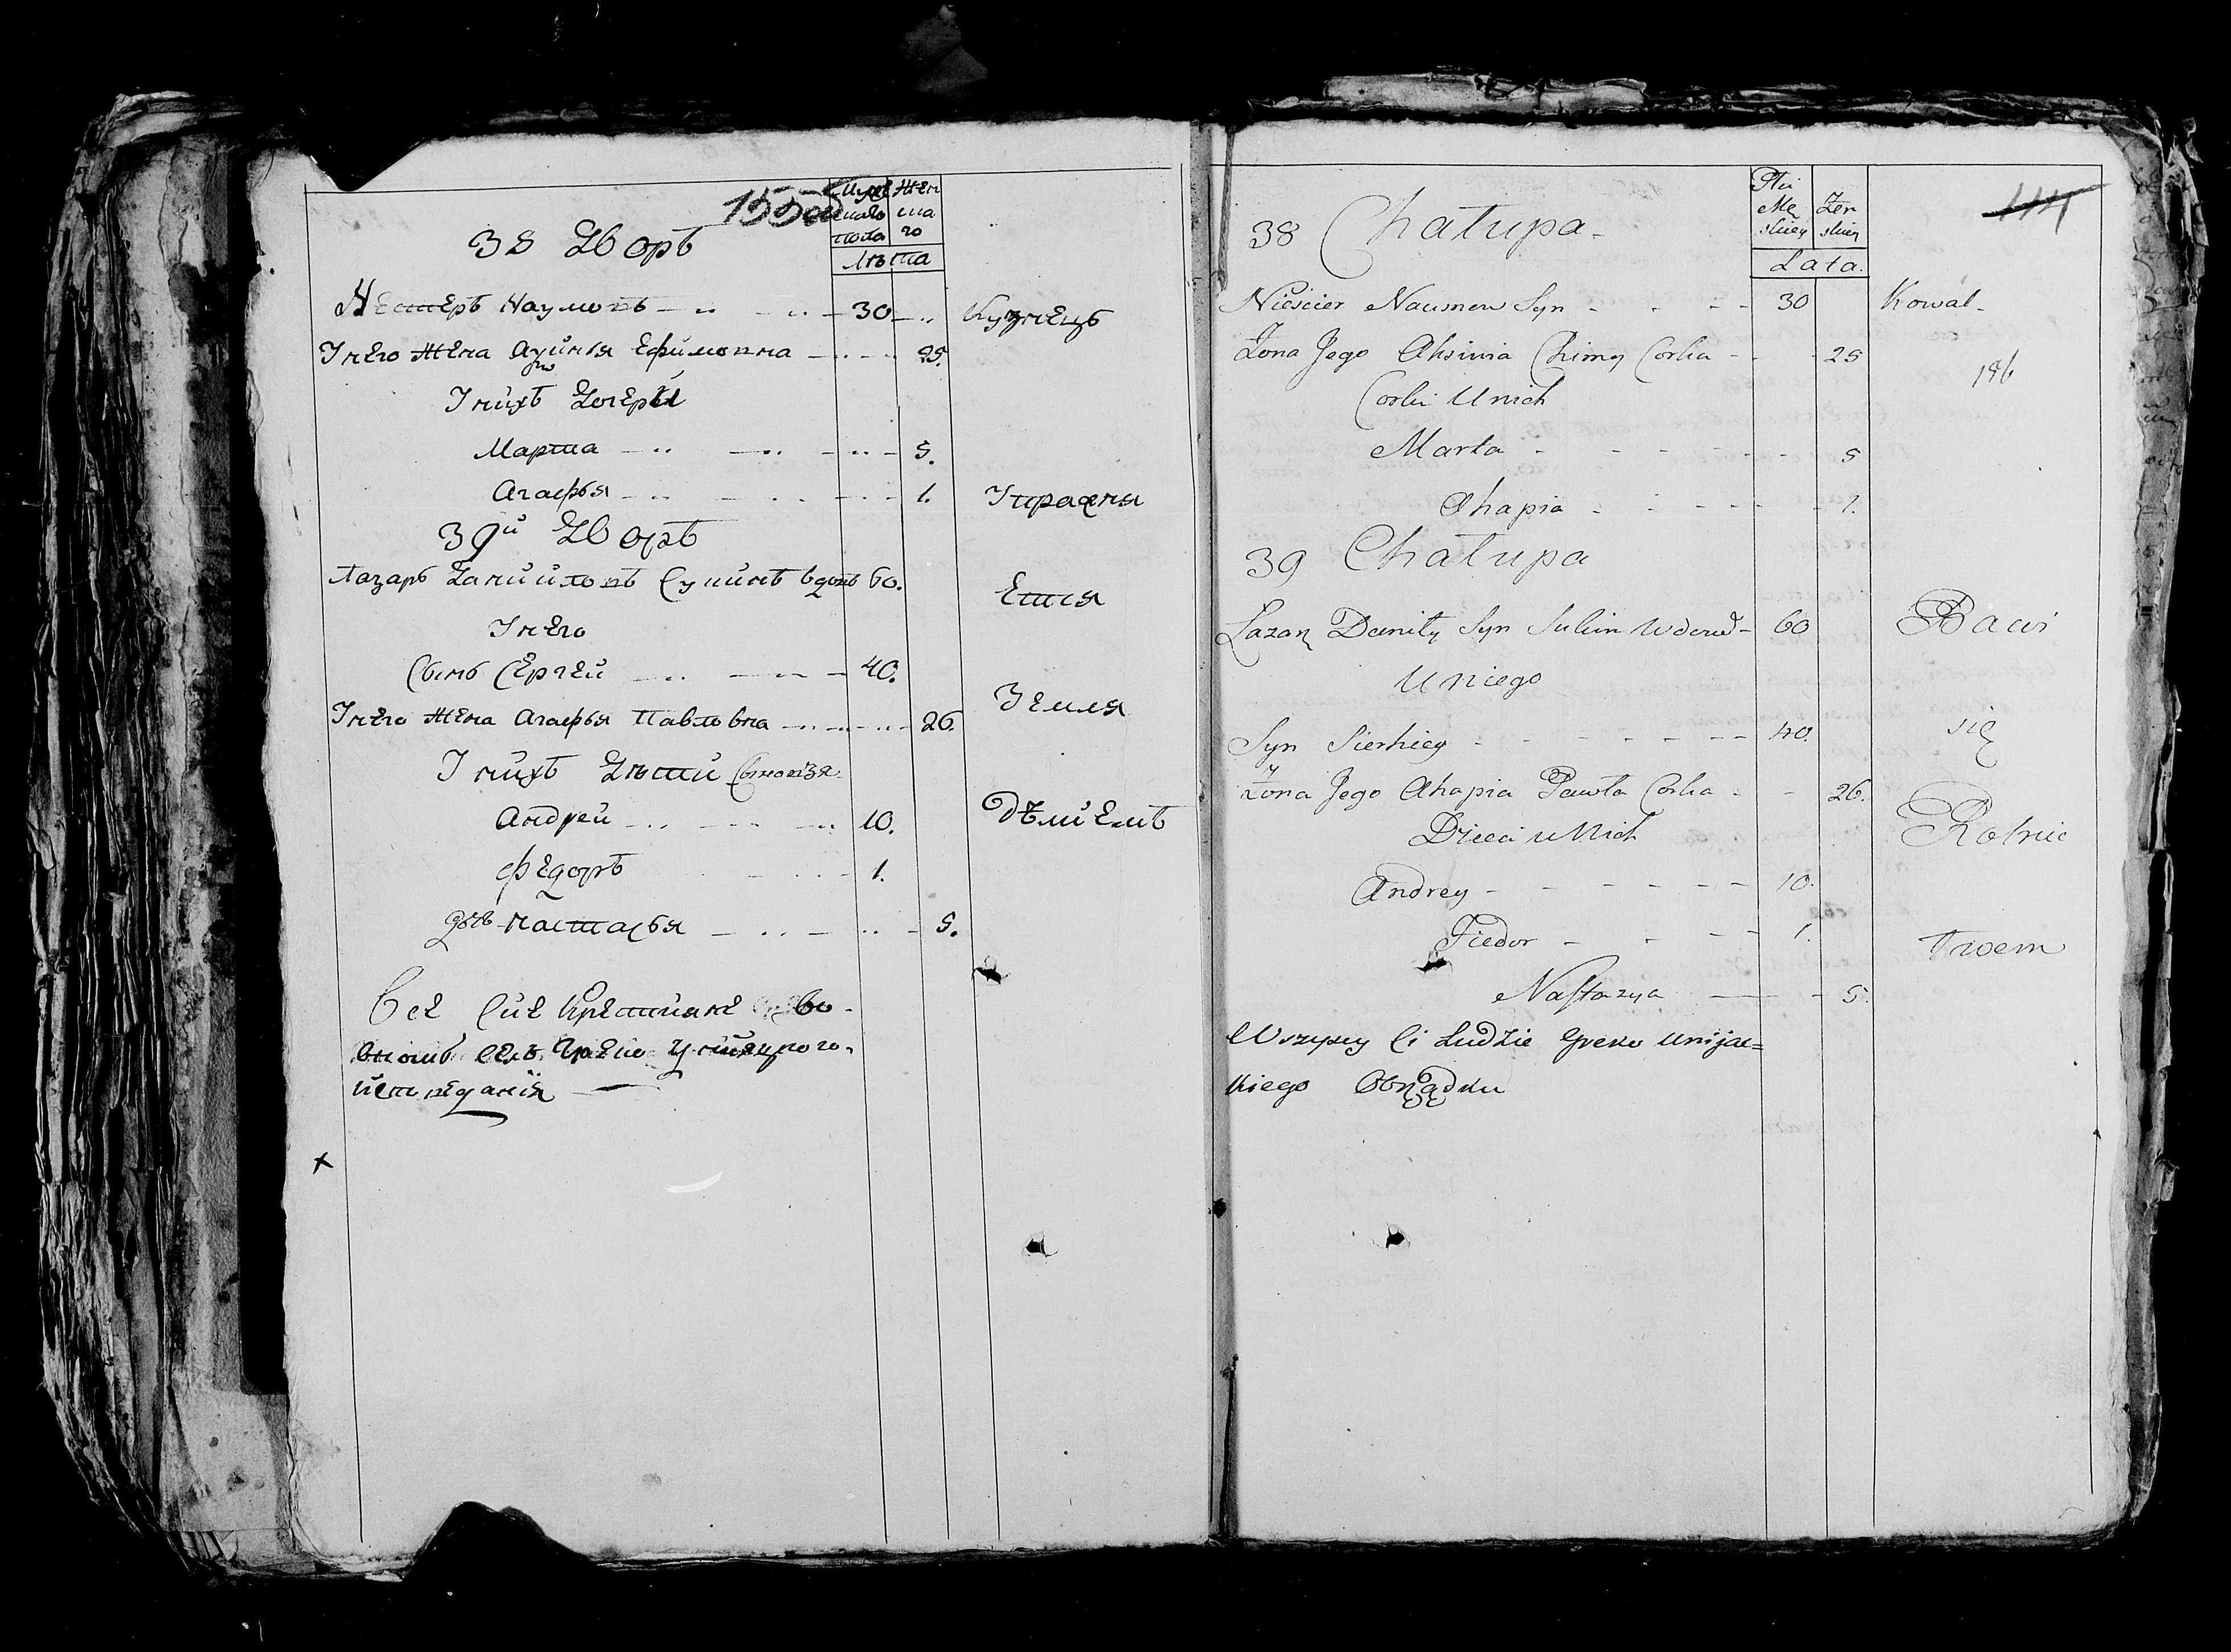 155об
Мужескаго пола
Женскаго
Лѣта
38 Дворъ
Нестеръ Наумовъ 30 Кузнецъ
Унего жена Аксинья Ефимовна 25.
Унихъ дочери
Марта 5.
Агафья 1.
Упражня
39й Дворъ
Лазарь Данииловъ Сулимъ вдовъ 60.
ется
Унего
Сынъ Сергей 40.
Унего жена Агафья Павловна 26.
Земля
Унихъ дѣти сыновья
Андрей 10.
дѣлиемъ
Федоръ 1.
дочь Настасья 5.
Все сие крестиане
селѣ Греко Униацкого
исповеданія
Płci
Męskiey
Żenskiey
Lata.
144
38 Chałupa
Nieścier Naumow Syn 30 Kowal
Żona Jego Aksinia Chimy Corka 25
186
Corki u nich
Marta 5
Ahapia 1.
39 Chałupa
Łazarz Daniły Syn Sulim Wdowiec 60 Bawi
U niego
Syn Sierhiey 40. się
Żona Jego Ahapia Pawła Corka 26.
Dzieci u Nich Rolnic
Andrey 10.
Fiedor 1. twem
Nastazya 5.
Wszyscy Ci Ludzie Greko Unijac=
kiego Obrządku